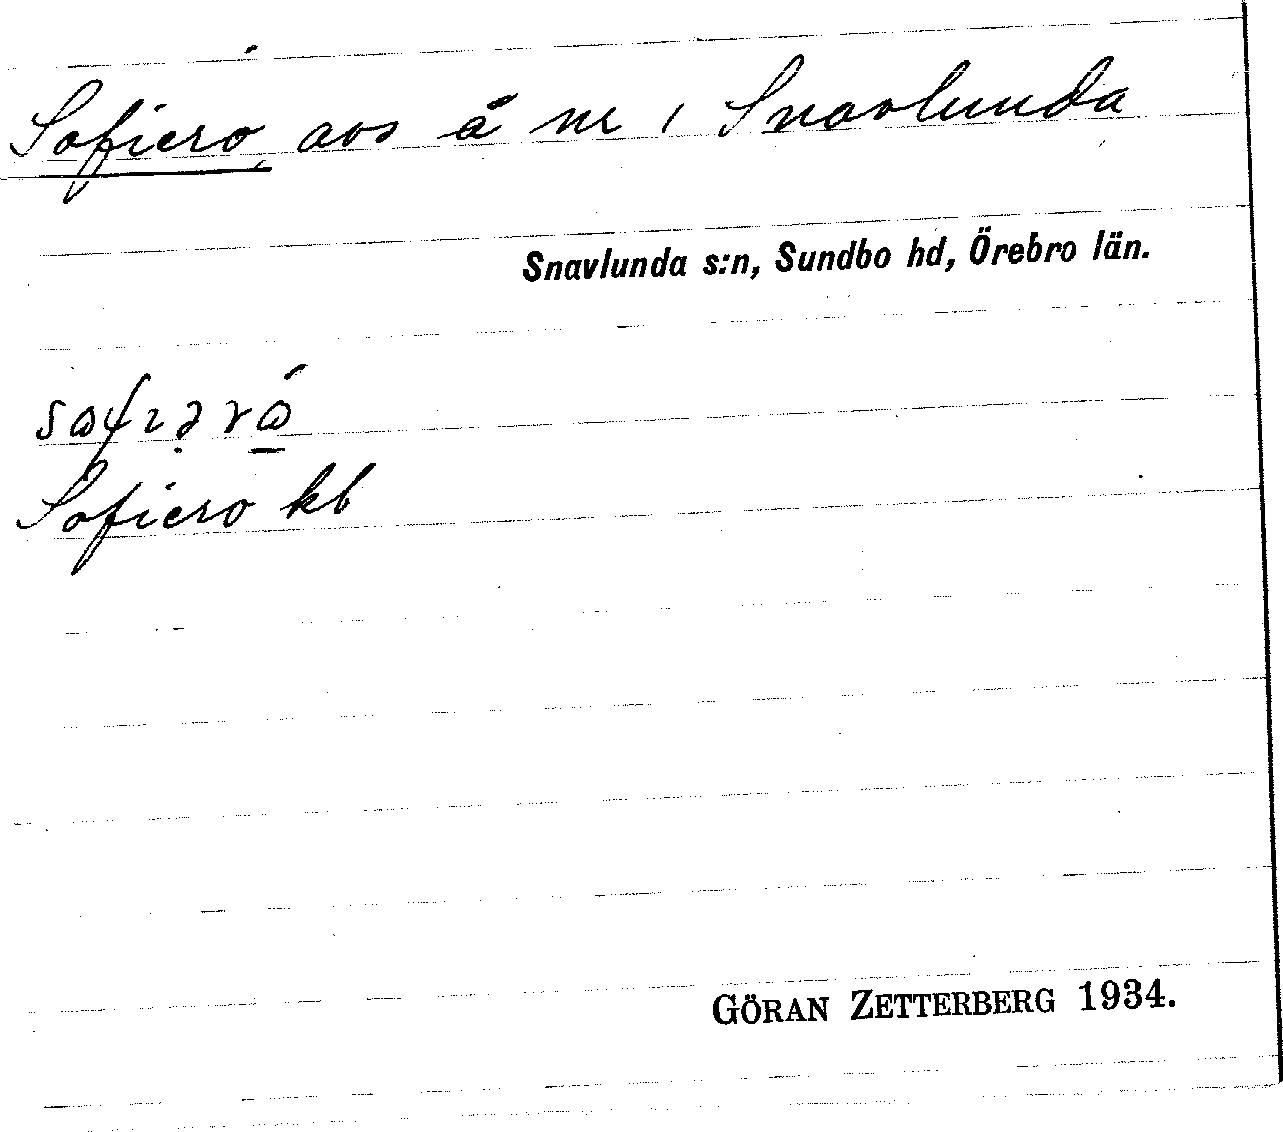 Sofiero, avs å nr 1 Snavlunda
Snavlunda s:n, Sundbo hd, Örebro län.
Sofiero kb
GÖRAN ZETTERBERG 1934.